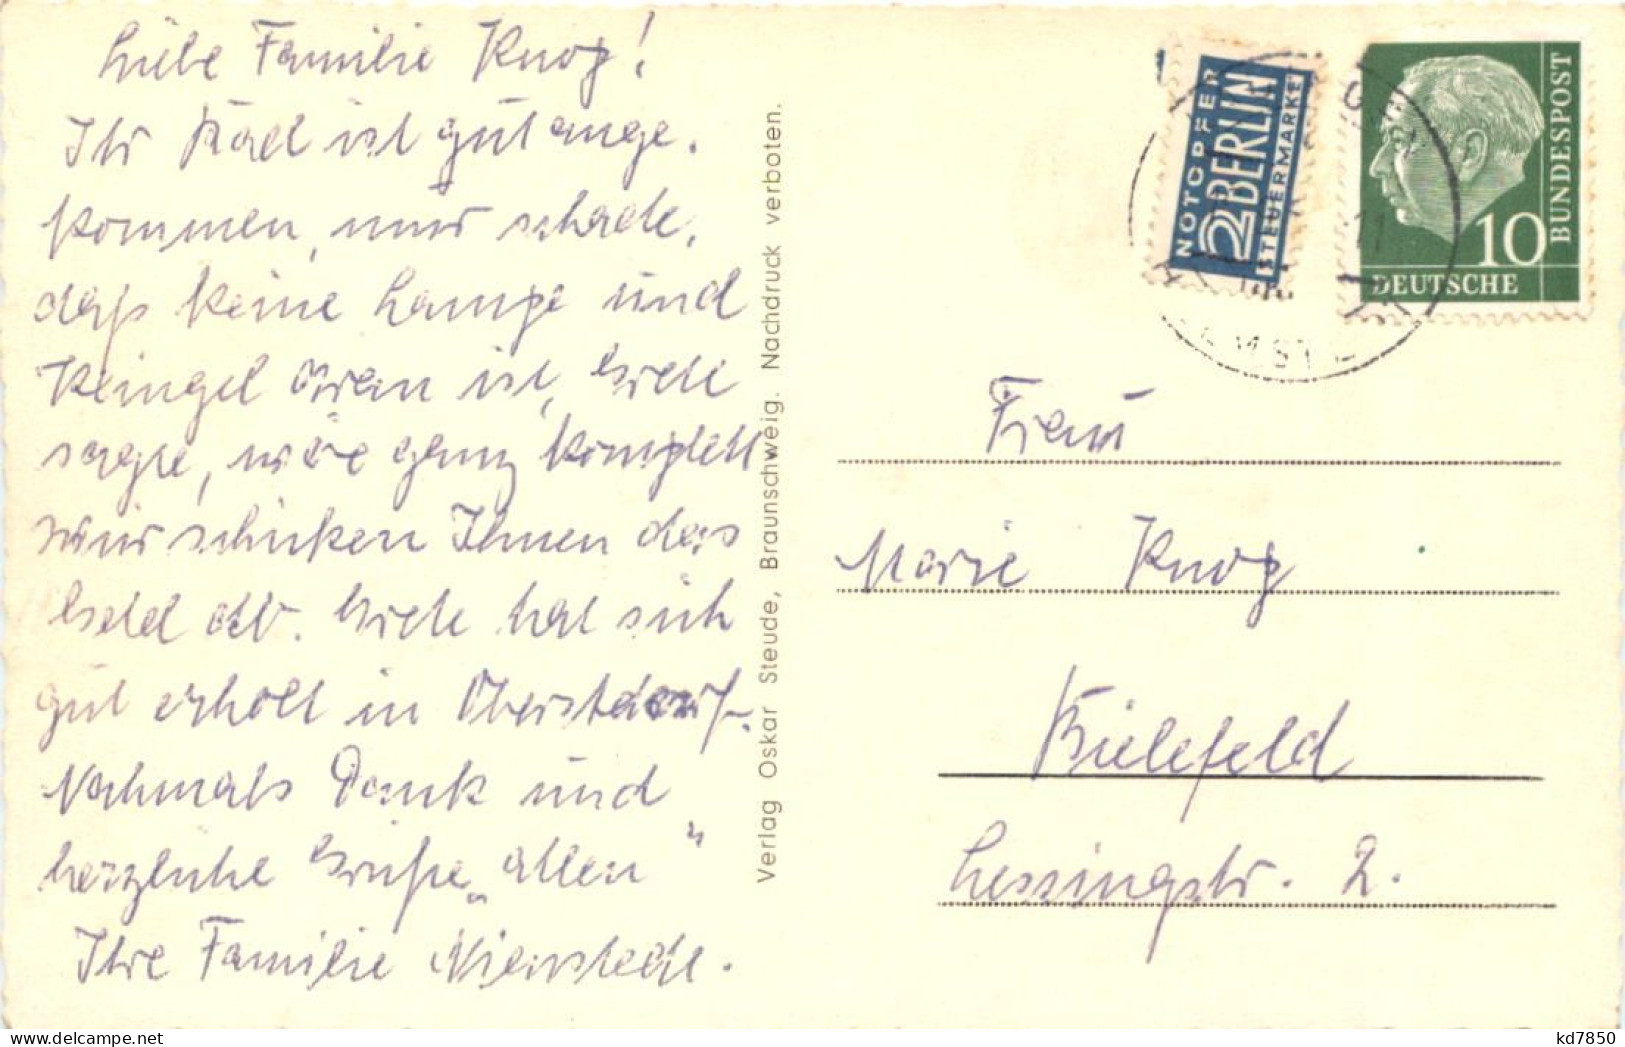 Liebe Familie Knop!
Ihr Rad ist gut ange-
kommen, nur schade,
daß keine Lampe und
Klingel dran ist, Grete
sagte, wäre ganz komplett
wir schicken Ihnen das
Geld ab. Grete hat sich
gut erholt in Oberstdorf.
Nochmals Dank und
herzliche Grüße „allen“
Ihre Familie Nienstedt.
Verlag Oskar Steude, Braunschweig. Nachdruck verboten.
NOTOPFER
2 BERLIN
STEUERMARKE
10
DEUTSCHE
BUNDESPOST
11
Frau
Marie Knop
Bielefeld
Lessingstr. 2.
kd7850